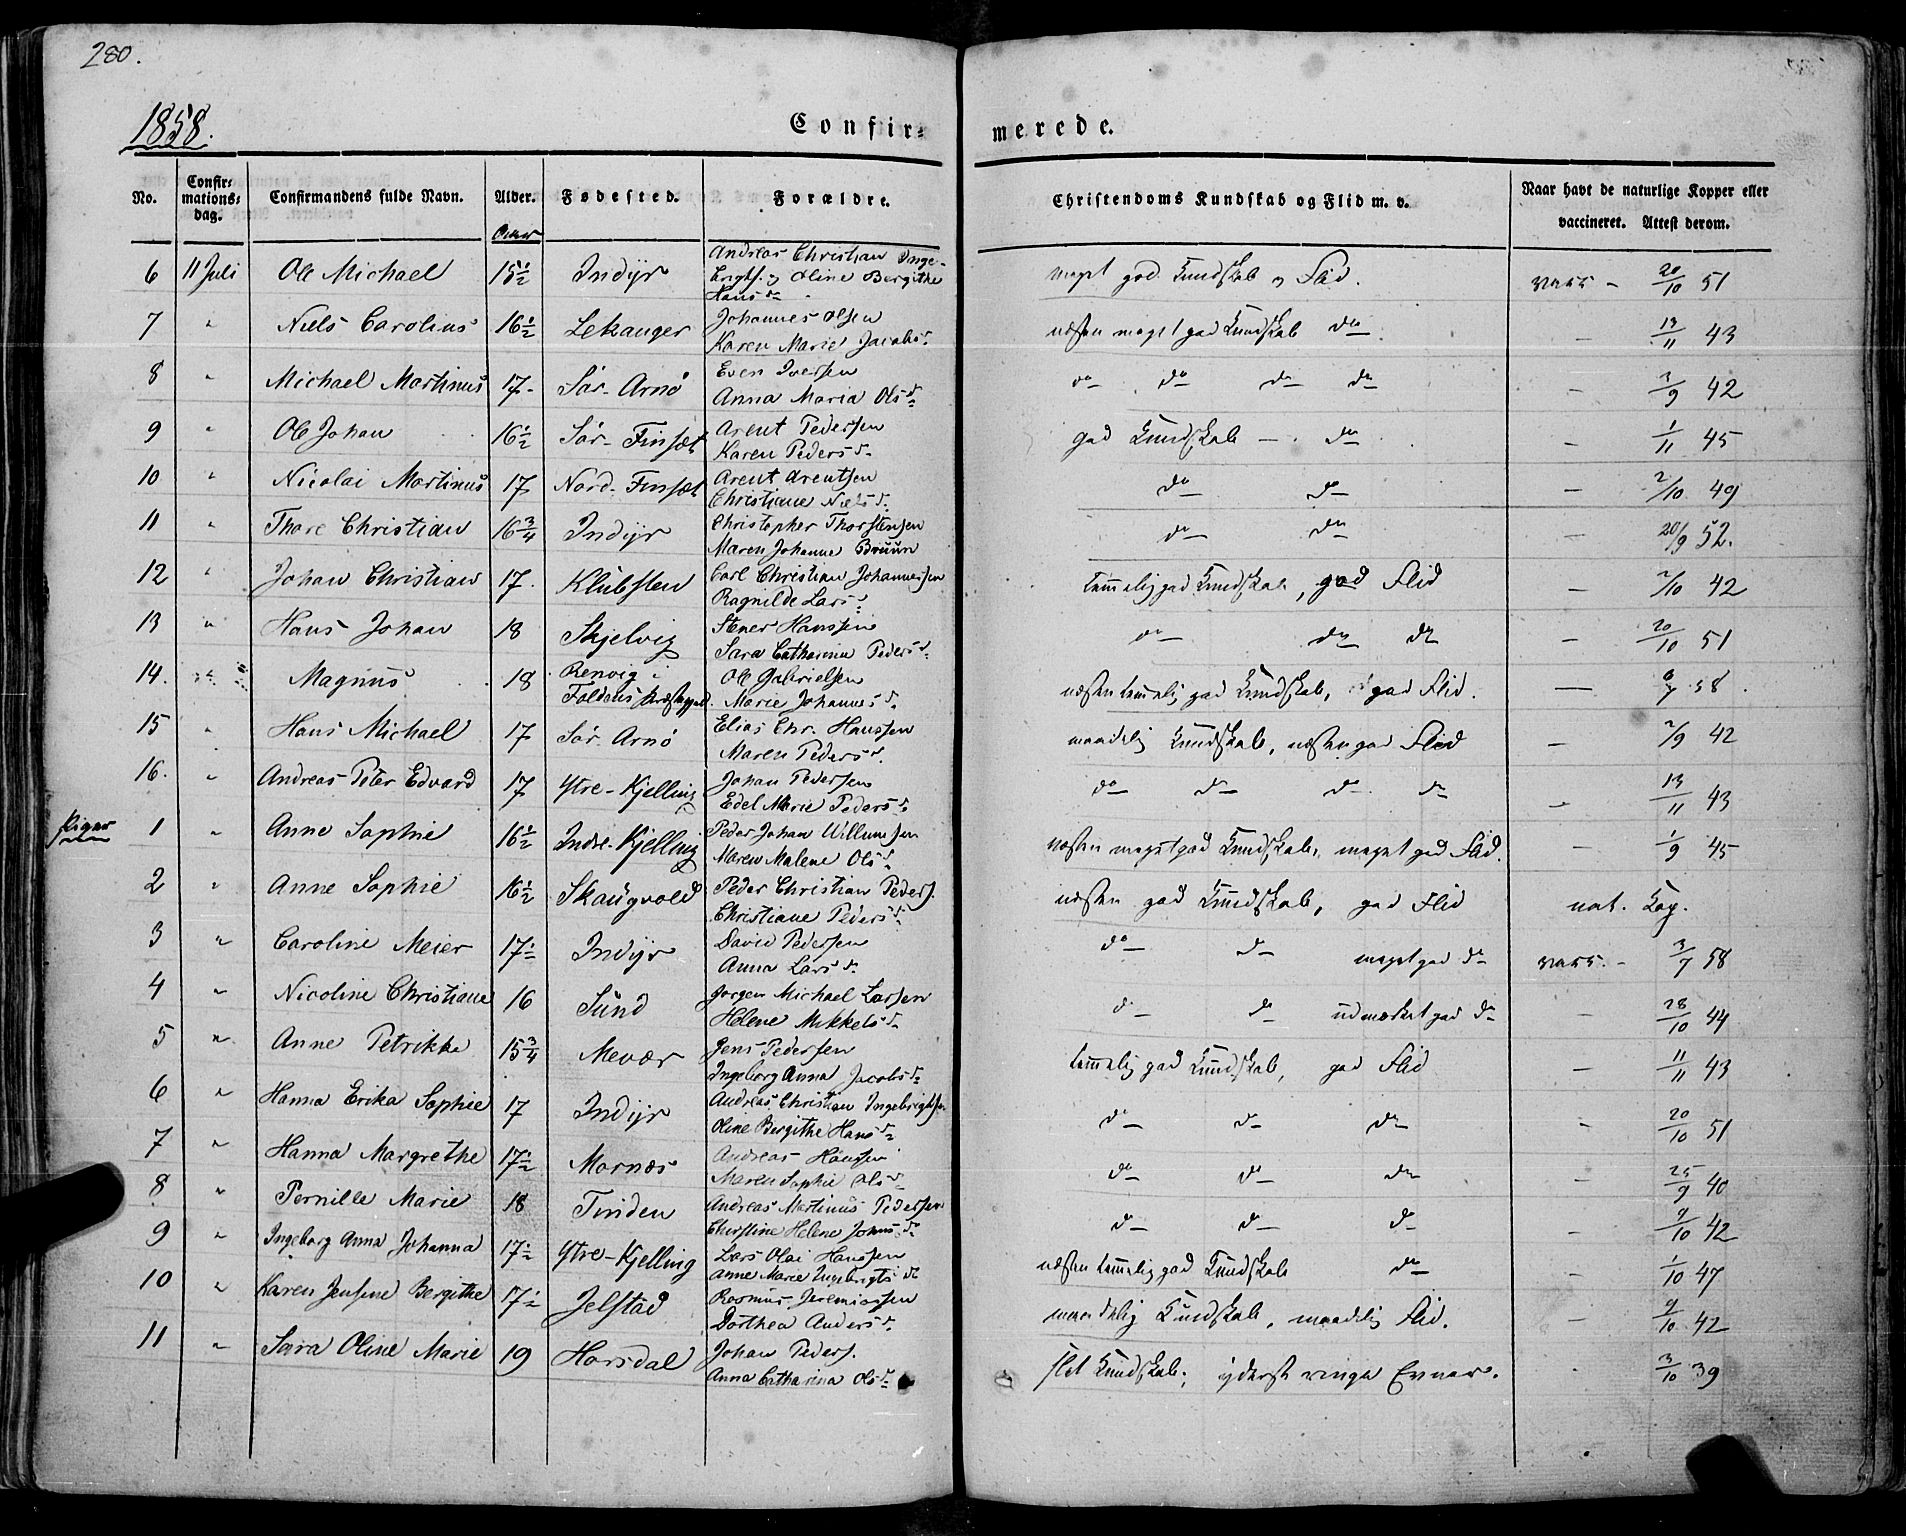 280.
1858.
Confir- merede.
No. Confir-mations-dag. Confirmandens fulde Navn. Alder. Fødested. Forældre. Christendoms Kundskab og Flid m. v. Naar havt de naturlige Kopper eller vaccineret. Attest derom.
6 11 Juli Ole Michael 15½ Indyr Andreas Christian Inge- meget god Kundskab og Flid. vacc - 20/10 51
brigts. og Oline Bergithe
Hansd.
7 " Niels Carolius 16½ Lekanger Johannes Olsen næsten meget god Kundskab do - 13/11 43
Karen Marie Jacobsd.
8 " Michael Martinus 17 Sör-Arnö Even Iversen do do do do - 3/9 42
Anna Maria Olsd
9 " Ole Johan 16½ Sör-Finset Arent Pedersen god Kundskab - do - 1/11 45
Karen Pedersd.
10 " Nicolai Martinus 17 Nord-Finset Arent Arentsen do do - 2/10 49
Christiane Nielsd.
11 " Thore Christian 16¾ Indyr Christopher Thorstensen do do - 20/9 52.
Maren Johanne Bruun
12 " Johan Christian 17. Klubsten Carl Christian Johannessen temmelig god Kundskab, god Flid - 2/10 42
Ragnilde Larsd
13 " Hans Johan 18 Skjelvig Stener Hanssen do do do - 20/10 51
Sara Catharina Pedersd.
14. " Magnus 18 Renvig i Ole Gabrielsen næsten temmelig god Kundskab, god Flid. - 6/7 58.
Foldens Præstegjeld. Marie Johannesd.
15 " Hans Michael 17 Sör-Arnö Elias Chr. Hanssen maadelig Kundskab, næsten god Flid - 2/9 42
Maren Pedersd.
16. " Andreas Peter Edvard 17 Ytre-Kjelling Johan Pedersen do do do do - 13/11 43
Edel Marie Pedersd.
Piger
1 " Anne Sophie 16½ Indre-Kjelling Peder Johan Willumsen næsten meget god Kundskab, meget god Flid. - 1/9 45
Maren Malene Olsd
2 " Anne Sophie 16½ Skaugvold Peder Christian Peders. næsten god Kundskab, god Flid nat. Kop.
Christiane Pedersd.
3 " Caroline Meier 17½ Indyr David Pedersen do do meget god do vacc. - 3/7 58
Anna Larsd.
4 " Nicoline Christiane 16 Sund Jørgen Michael Larsen do do udmærket god do - 28/10 44
Helene Mikkelsd.
5 " Anne Petrikke 15¾ Mevær Jens Pedersen temmelig god Kundskab, god Flid - 11/11 43
Ingeborg Anna Jacobsd.
6 " Hanna Erika Sophie 17 Indyr Andreas Christian Ingebrigtsen do do do - 20/10 51
Oline Bergithe Hansd.
7 " Hanna Margrethe 17½ Mornæs Andreas Hanssen do do do - 25/9 40
Maren Sophie Olsd
8 " Pernille Marie 18 Tinden Andreas Martinus Pedersen do do do - 9/10 42
Christine Helene Johnsd.
9 " Ingeborg Anna Johanna 17½ Ytre-Kjelling Lars Olai Hanssen næsten temmelig god Kundskab do - 1/10 47
Anne Marie Ingebrigtsd.
10 " Karen Jensine Bergithe 17½ Jelstad Rasmus Jeremiassen maadelig Kundskab, maadelig Flid. - 9/10 42
Dorthea Andersd.
11 " Sara Oline Marie 19 Horsdal Johan Peders. slet Kundskab; yderst ringe Evner. - 3/10 39
Anna Catharina Olsd